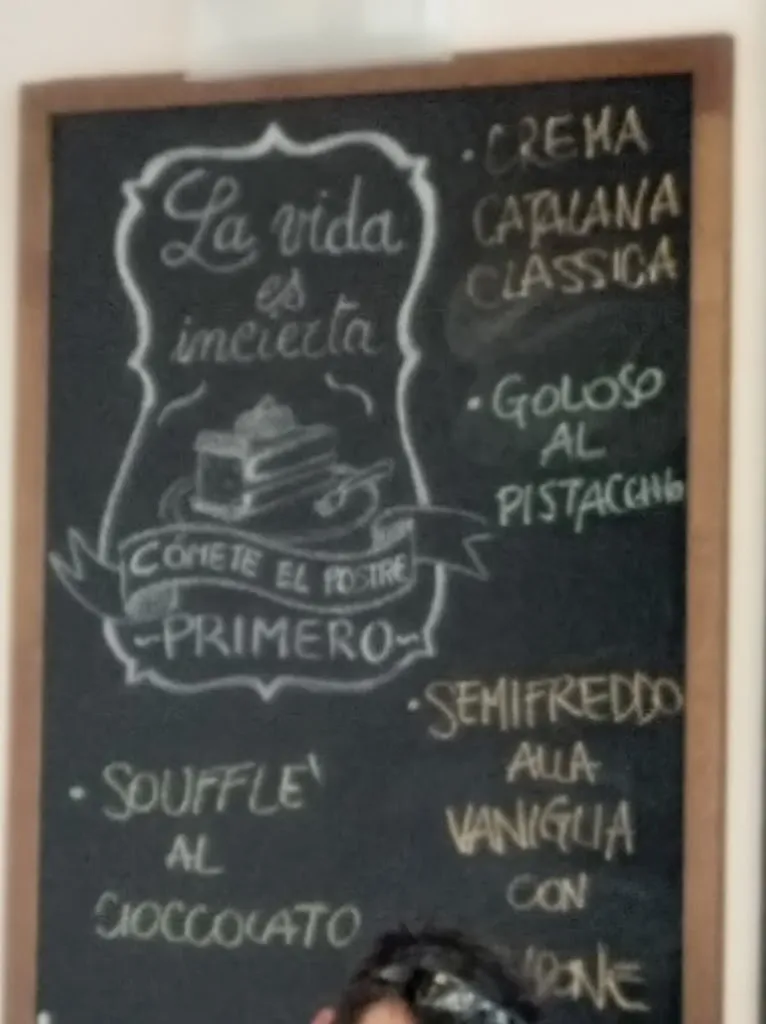 La vida
es
incierta
CÓMETE EL POSTRE
~PRIMERO~
• SOUFFLE'
AL
CIOCCOLATO
• CREMA
CATALANA
CLASSICA
• GOLOSO
AL
PISTACCHIO
• SEMIFREDDO
ALLA
VANIGLIA
CON